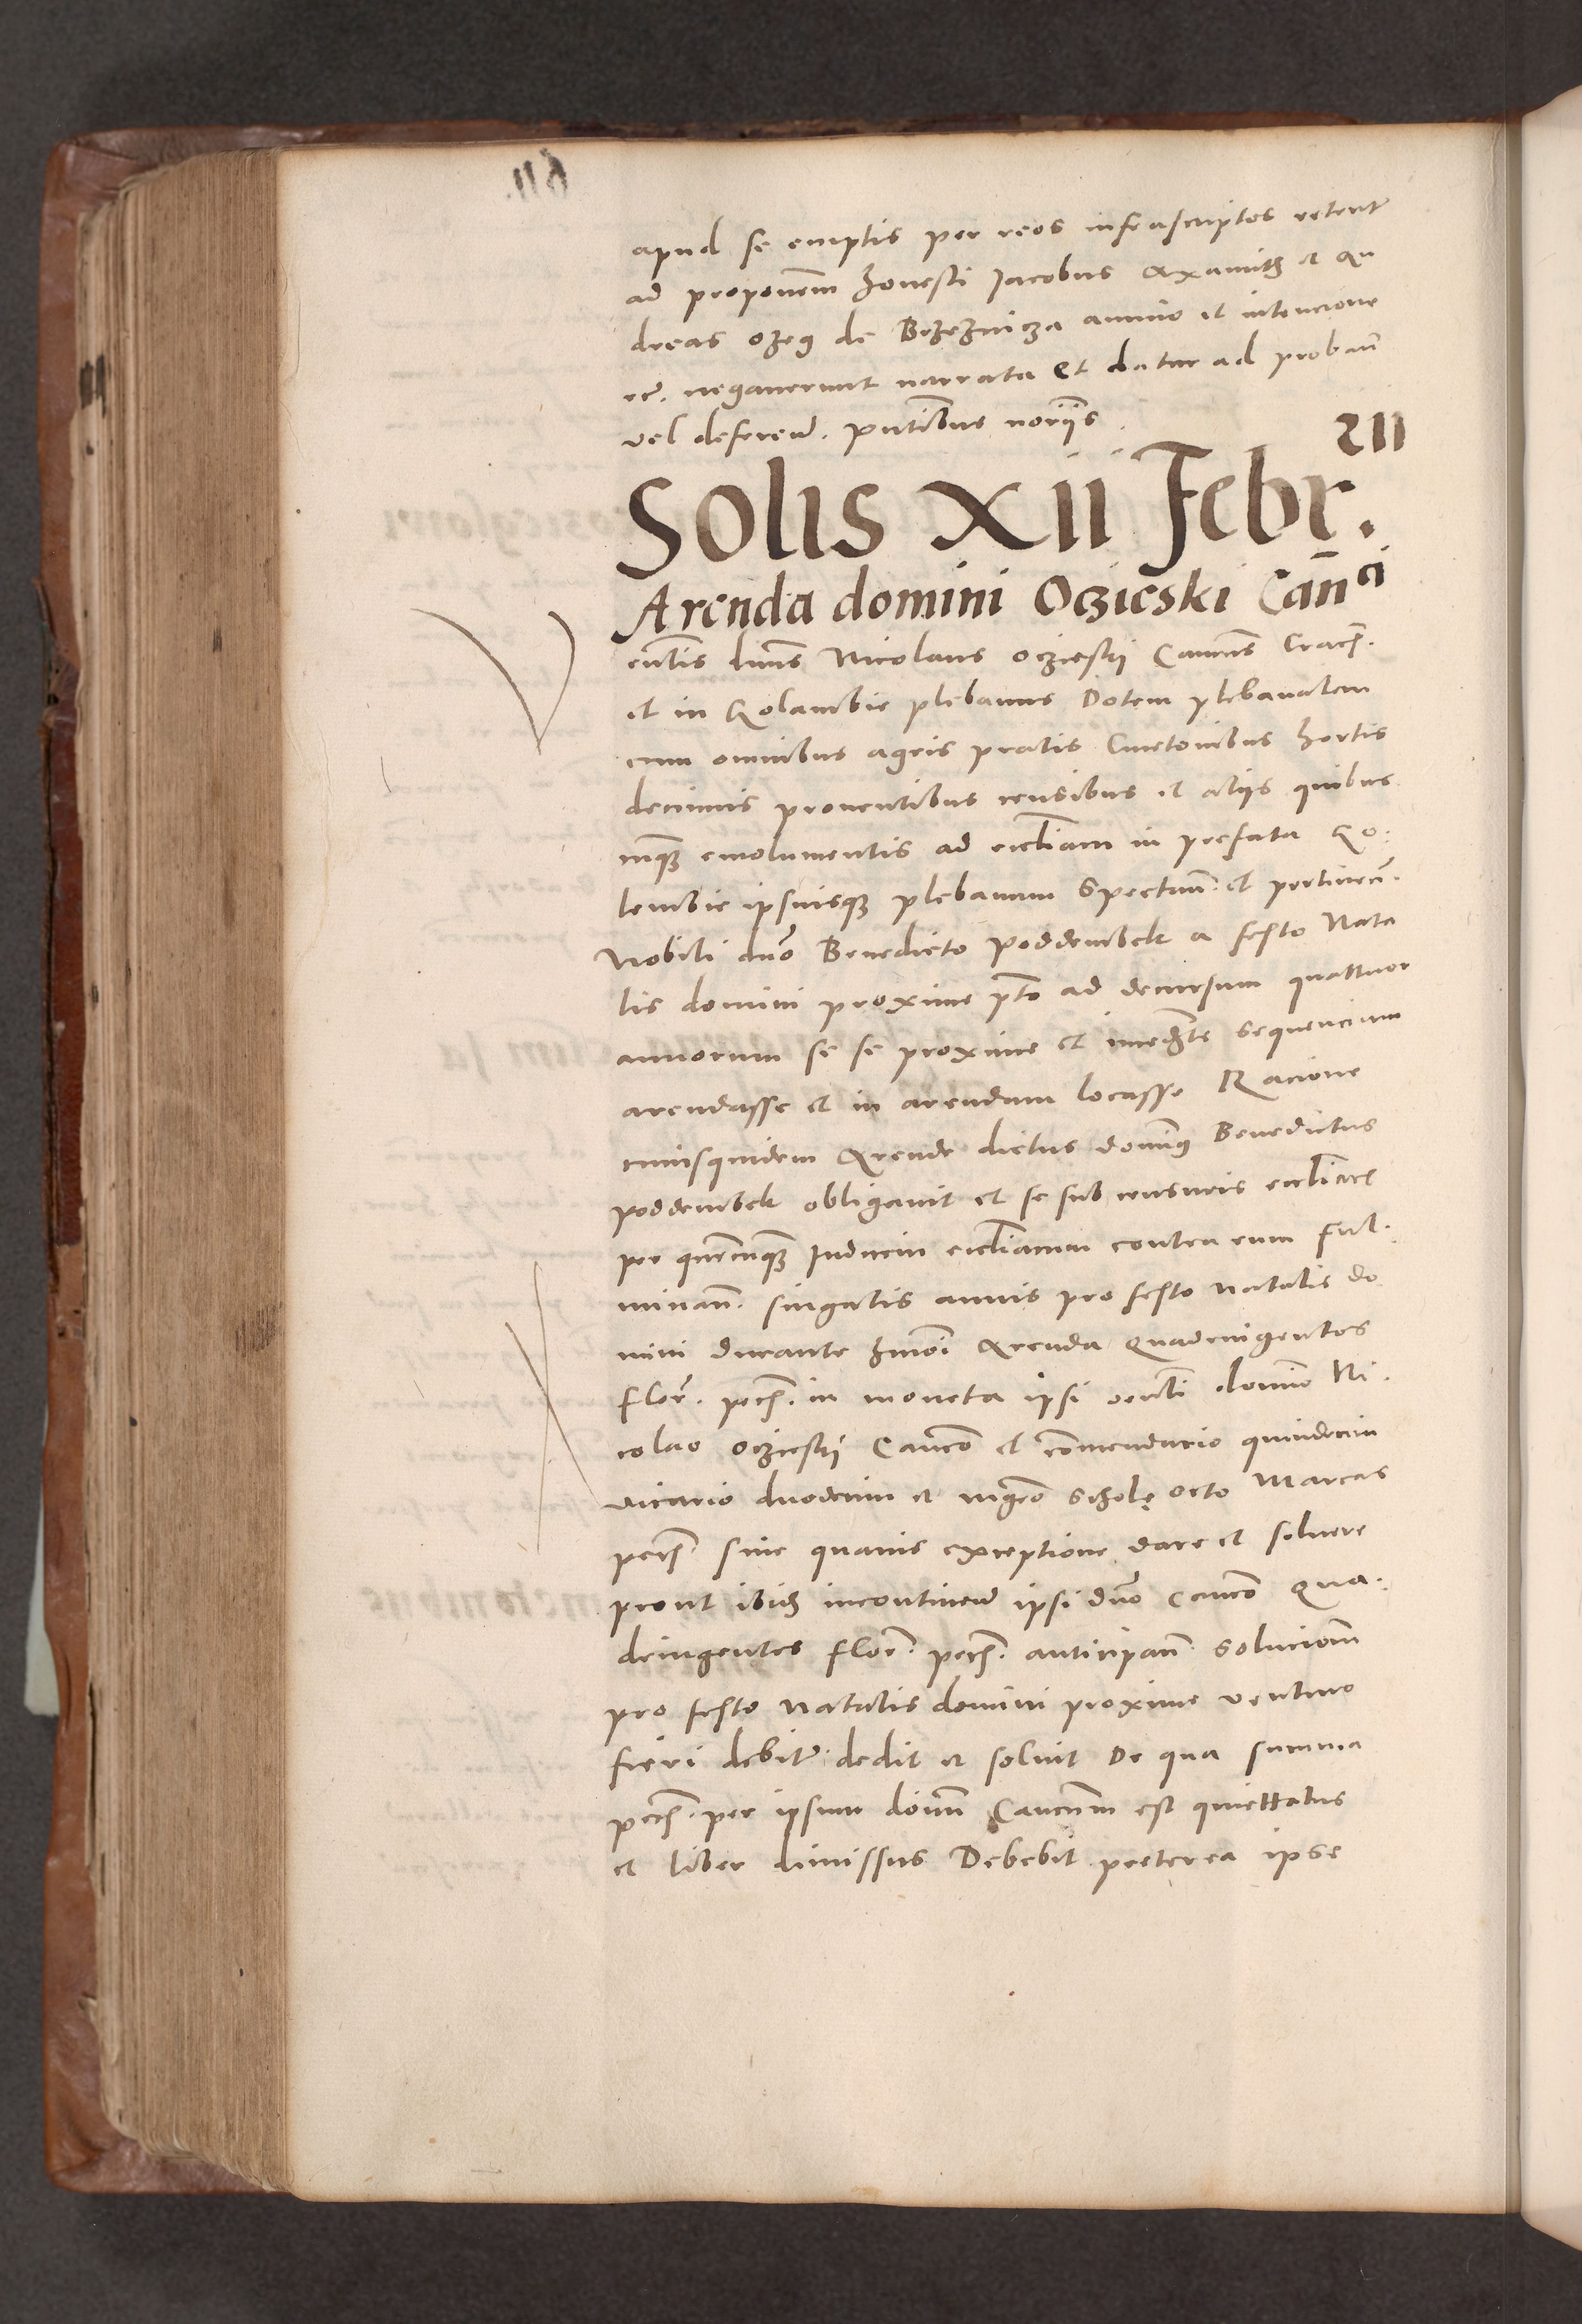 apud se emptis per reos infrascriptos retent
ad proponem honesti Jacobus Axamith et An
dreas ozeg de Brzeznicza animo et intencione
rc. negauerunt narrata Et datur ad proband
vel deferend. pntibus noriis.
211
Solis XII Febr.
Arenda domini Oczieski Canci
Venlis dnns Nicolaus oczieskij Cancns Crach.
et in Kolambie plebanus Dotem plebanalem
cum omnibus agris pratis Cmetonibus hortis
decimis prouentibus censibus et aliis quibus
cunq emolumentis ad eccliam in prefata Ko.
lembie ipsiusq plebanum Spectan. et pertinen.
Nobili dno Benedicto poddembek a festo Nata
lis domini proxime pto ad decursum quattuor
annorum se se proxime et immedte sequencium
arendasse et in arendam locasse Racione
cuiusquidem Arende dictus dominus Benedictus
poddembek obligauit et se sub censuris eccliacs
per quemcunq Iudicem eccliacum contra eum ful.
minan. singulis annis pro festo natalis do
mini durante hmoi Arenda Quadringentos
flor. pech. in moneta ipsi venli domino Ni.
colao oczieskij Canco et commendario quindecim
vicario duodecim et mgro scholę octo Marcas
pech. sine quauis exceptione dare et soluere
prout ibid incontinent ipsi dno Canco Qua.
dringentos flor. pech. anticipan. solucionem
pro festo natalis domini proxime venturo
fieri debit. dedit et soluit De qua summa
pech. per ipsum donm Cancnm est quiettatus
et liber dimissus Debebit preterea ipse